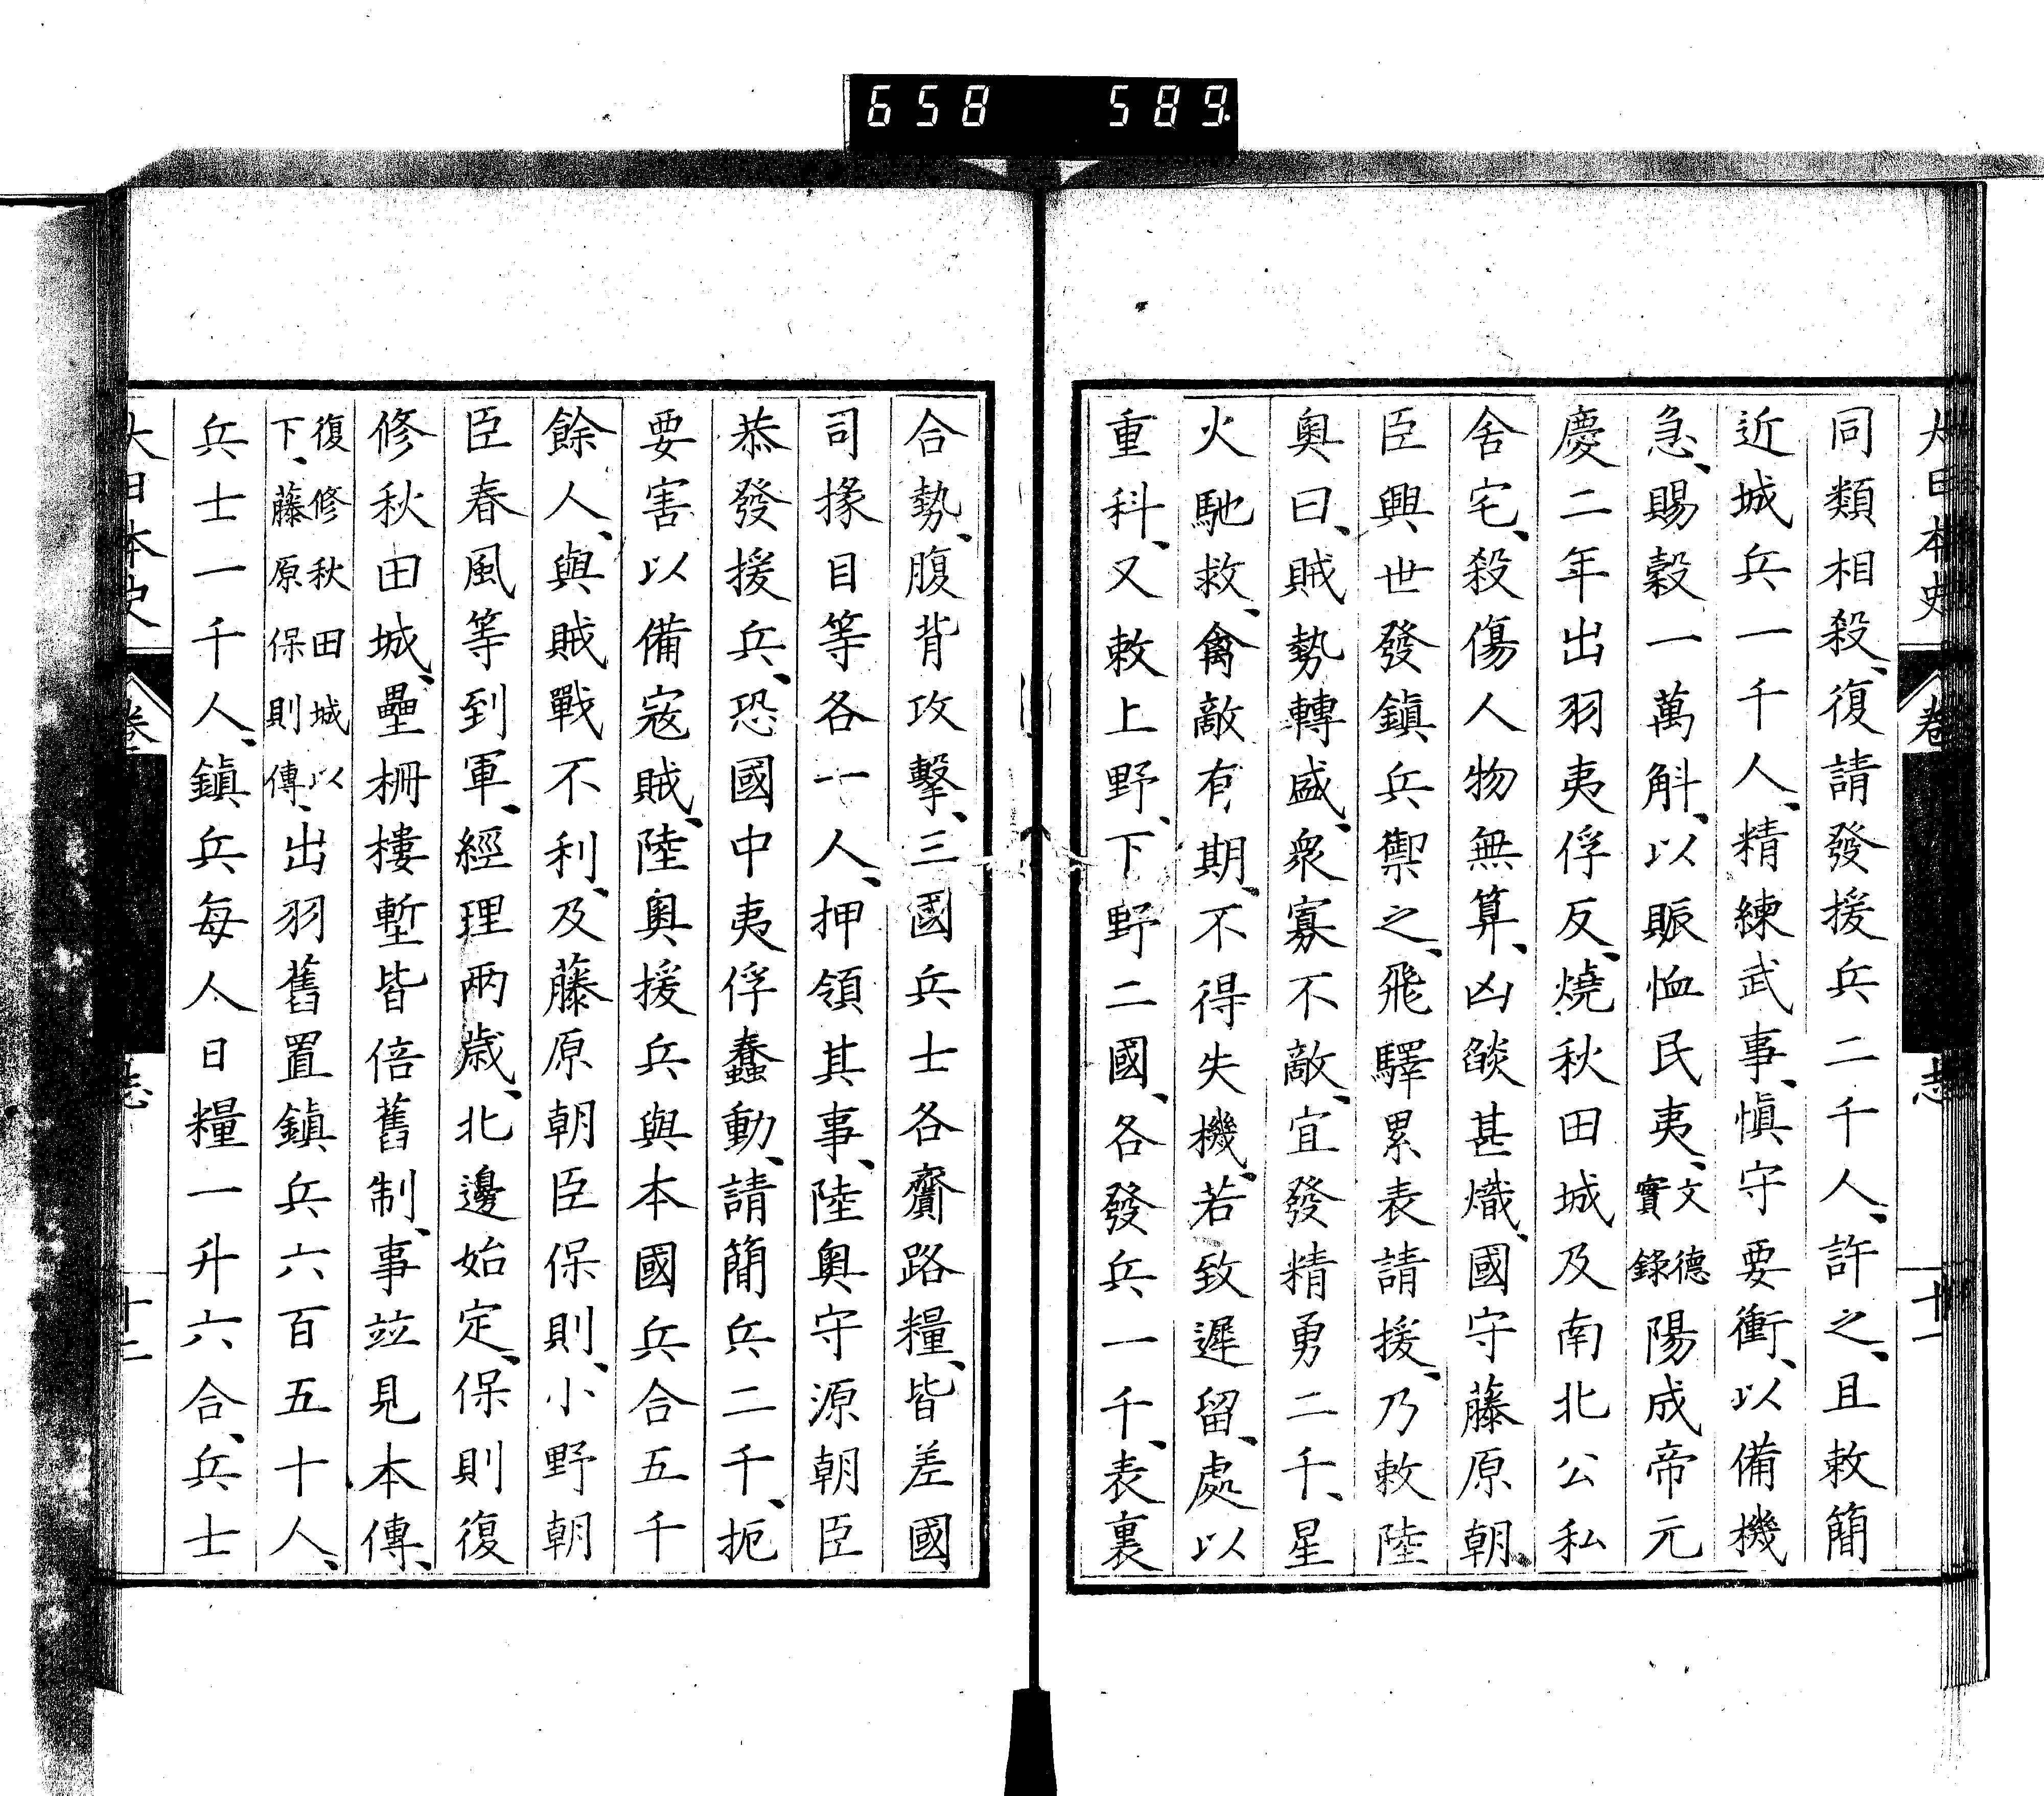 658 589
大日本史 卷 志 十一
同類相殺、復請發援兵二千人、許之、且敕簡
近城兵一千人、精練武事、愼守要衝、以備機
急、賜穀一萬斛、以賑恤民夷、文德實錄陽成帝元
慶二年出羽夷俘反、燒秋田城及南北公私
舍宅、殺傷人物無算、凶燄甚熾、國守藤原朝
臣興世發鎭兵禦之、飛驛累表請援、乃敕陸
奧曰、賊勢轉盛、衆寡不敵、宜發精勇二千、星
火馳救、禽敵有期、不得失機、若致遲留、處以
重科、又敕上野、下野二國、各發兵一千、表裏
合勢、腹背攻擊、三國兵士各齎路糧、皆差國
司掾目等各一人、押領其事、陸奧守源朝臣
恭發援兵、恐國中夷俘蠢動、請簡兵二千、扼
要害以備寇賊、陸奧援兵與本國兵合五千
餘人、與賊戰不利、及藤原朝臣保則、小野朝
臣春風等到軍、經理兩歲、北邊始定、保則復
修秋田城、壘柵樓塹皆倍舊制、事竝見本傳、
復修秋田城以
下、藤原保則傳、出羽舊置鎭兵六百五十人、
兵士一千人、鎭兵每人日糧一升六合、兵士
大日本史 卷 志 十二